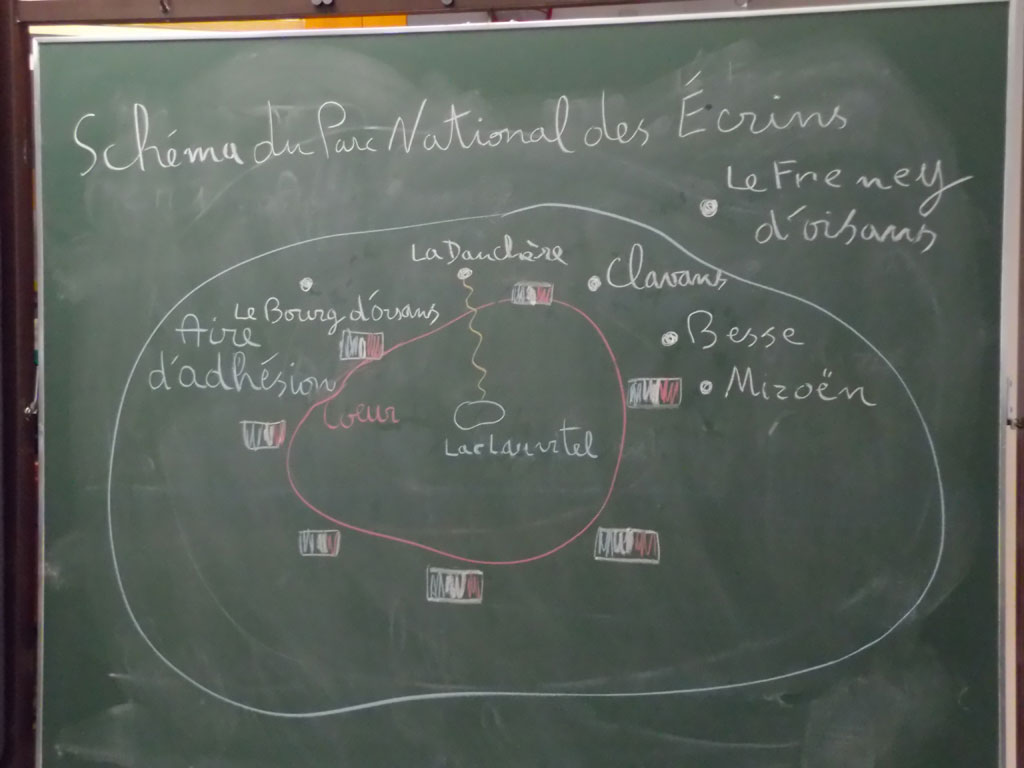 Schéma du Parc National des Écrins
Le Freney
d'oisans
La Danchère
Clavans
Le Bourg d'oisans
Aire
d'adhésion
Besse
Mizoën
Coeur
Lac Lauvitel